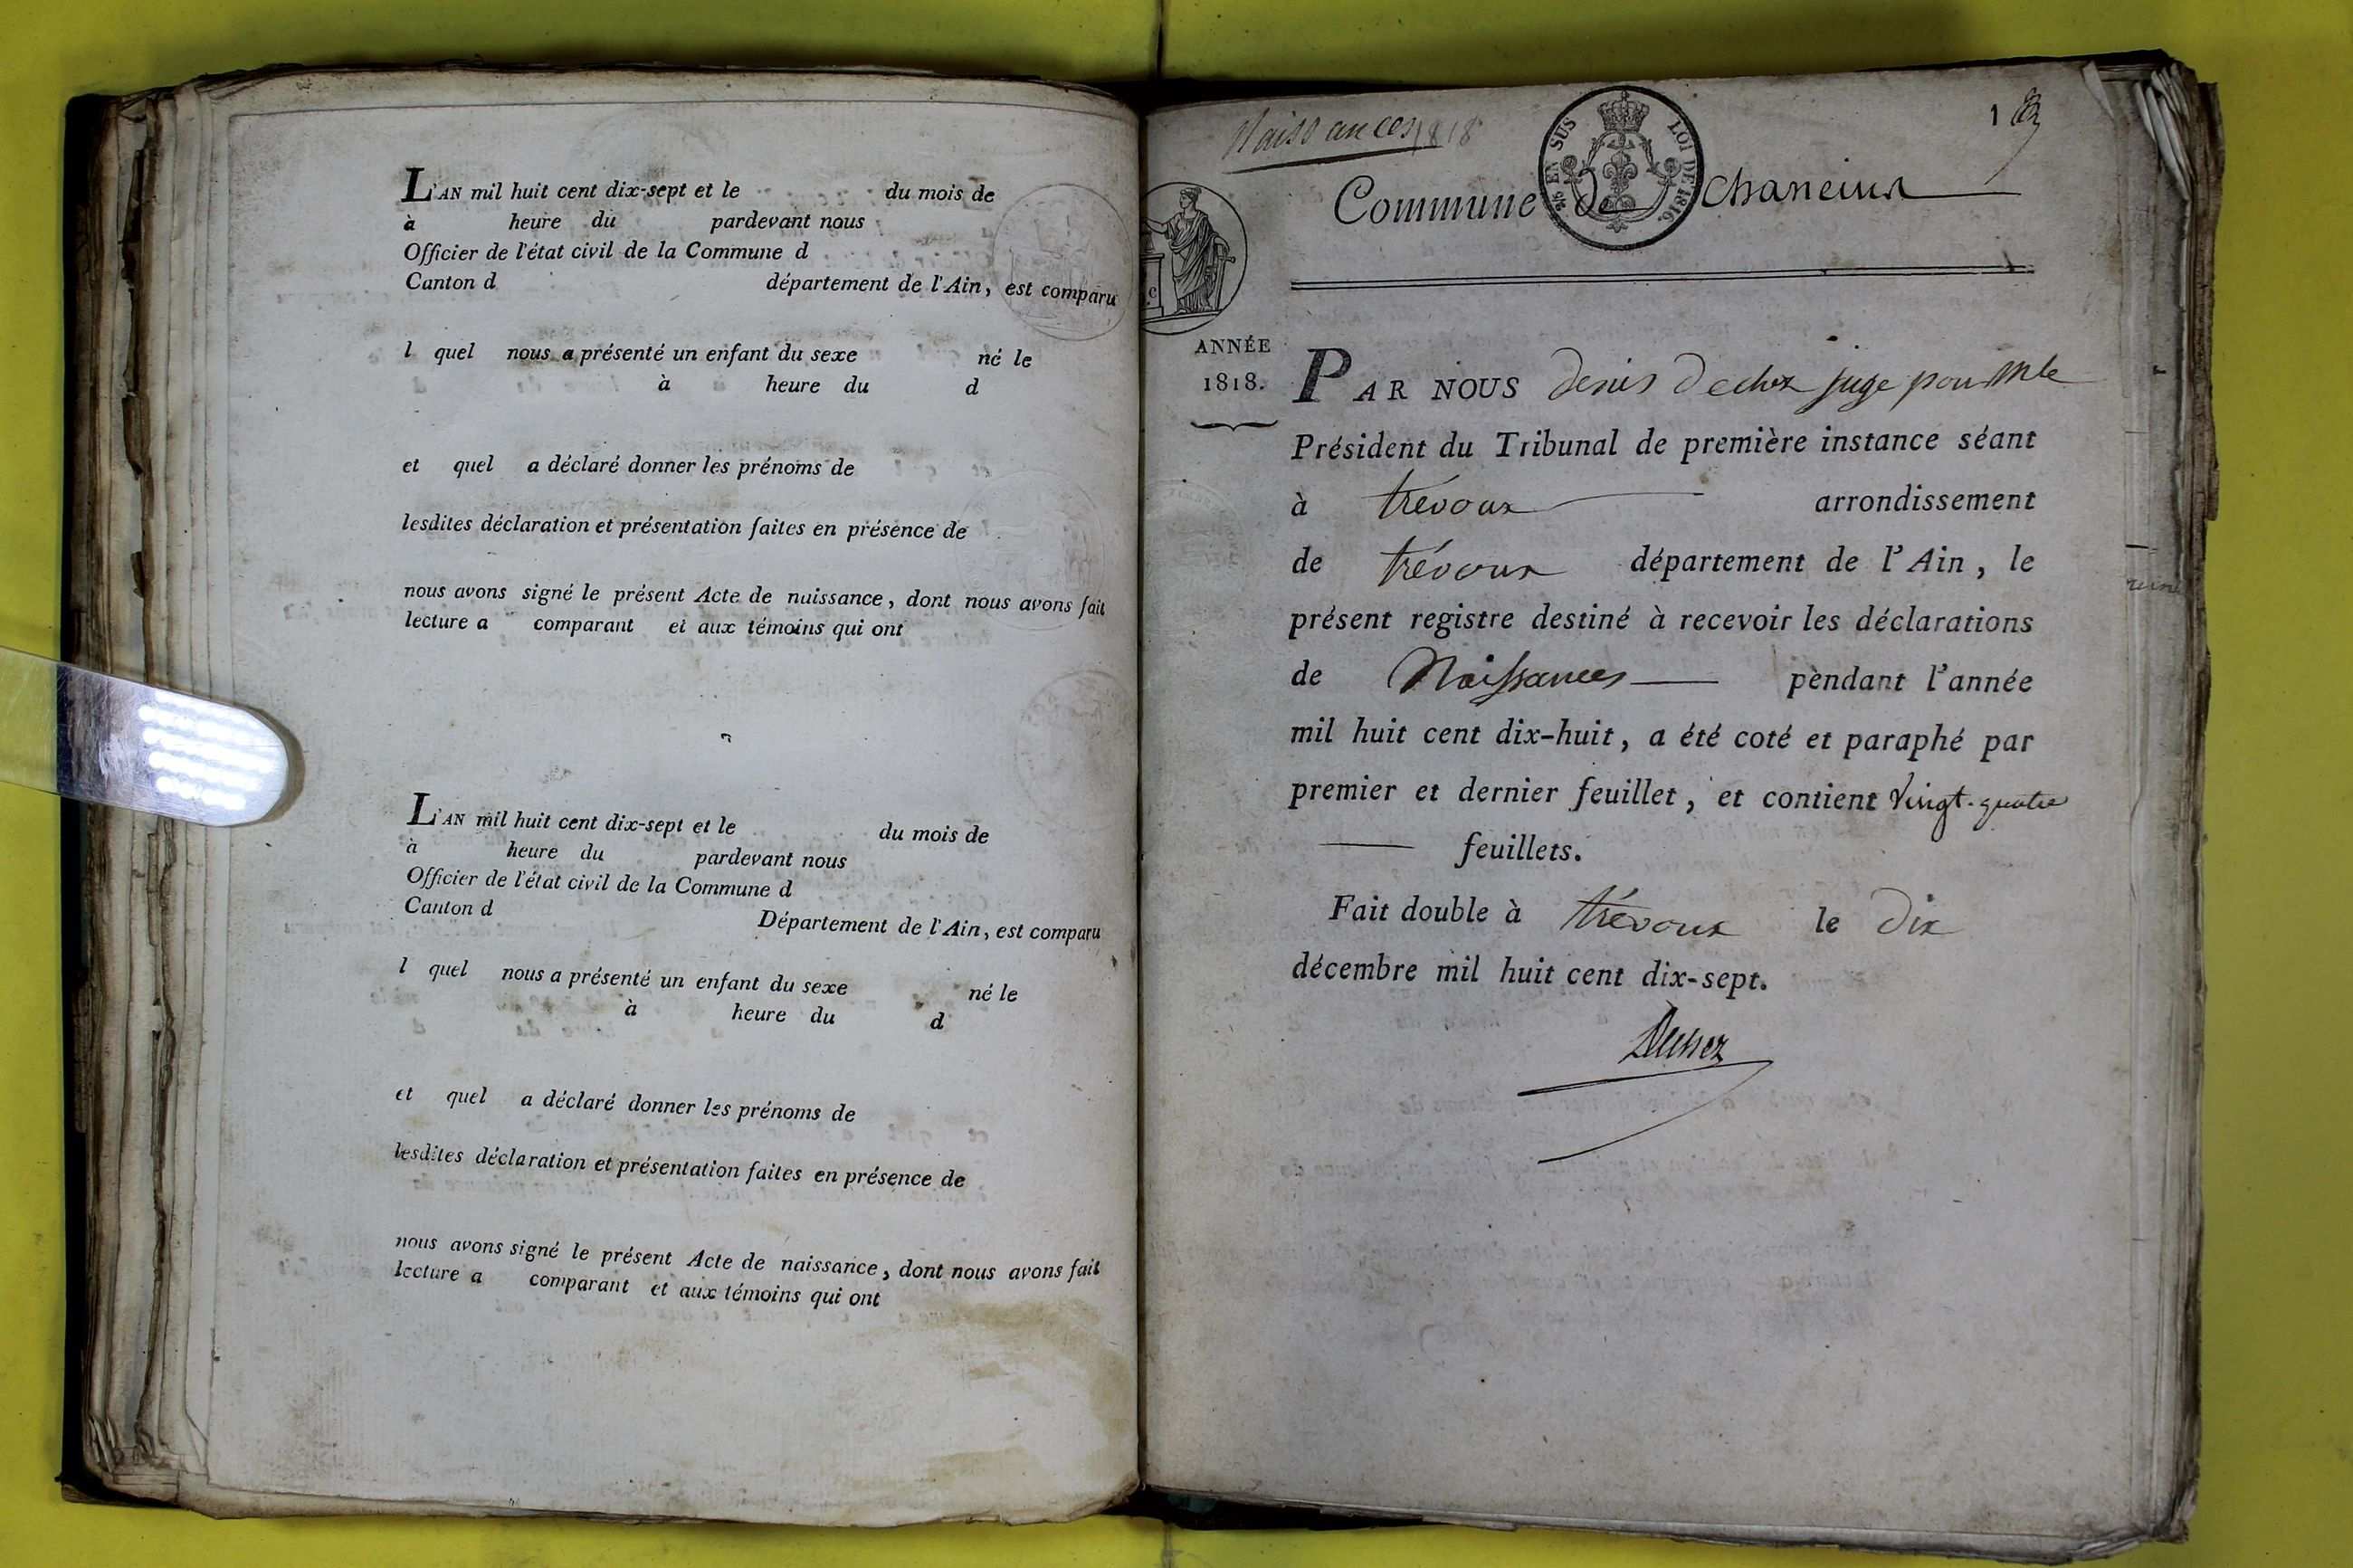 L'AN mil huit cent dix-sept et le du mois de
à heure du pardevant nous
Officier de l'état civil de la Commune d
Canton d département de l'Ain, est comparu
l quel nous a présenté un enfant du sexe né le
à heure du d
et quel a déclaré donner les prénoms de
lesdites déclaration et présentation faites en présence de
nous avons signé le présent Acte de naissance, dont nous avons fait
lecture a comparant et aux témoins qui ont
L'AN mil huit cent dix-sept et le du mois de
à heure du pardevant nous
Officier de l'état civil de la Commune d
Canton d Département de l'Ain, est comparu
l quel nous a présenté un enfant du sexe né le
à heure du d
et quel a déclaré donner les prénoms de
lesdites déclaration et présentation faites en présence de
nous avons signé le présent Acte de naissance, dont nous avons fait
lecture a comparant et aux témoins qui ont
Naissances 1818
1
EN SUS LOI DE 1816.
Commune de Chaneins
ANNÉE
1818.
PAR NOUS denis Dechez juge pour Mr le
Président du Tribunal de première instance séant
à trévoux arrondissement
de trévoux département de l'Ain, le
présent registre destiné à recevoir les déclarations
de Naissances pendant l'année
mil huit cent dix-huit, a été coté et paraphé par
premier et dernier feuillet, et contient Vingt-quatre
feuillets.
Fait double à trévoux le dix
décembre mil huit cent dix-sept.
Dechez